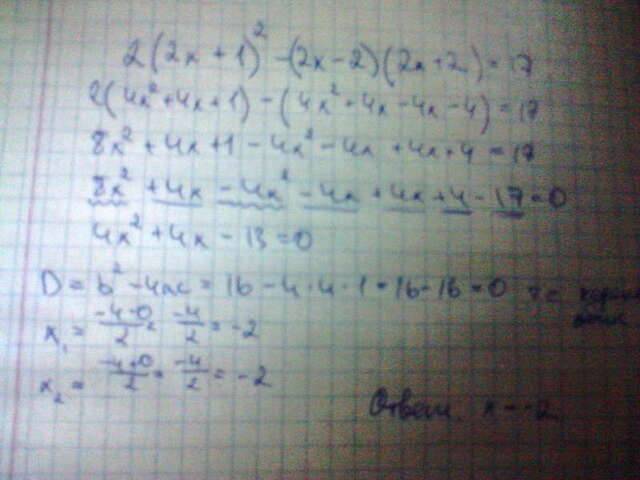 2(2x + 1)² - (2x - 2)(2x + 2) = 17
2(4x² + 4x + 1) - (4x² + 4x - 4x - 4) = 17
8x² + 4x + 1 - 4x² - 4x + 4x + 4 = 17
8x² + 4x - 4x² - 4x + 4x + 4 - 17 = 0
4x² + 4x - 13 = 0
D = b² - 4ac = 16 - 4 · 4 · 1 = 16 - 16 = 0
x₁ = (-4-0)/2 = -4/2 = -2
x₂ = (-4+0)/2 = -4/2 = -2
Ответ x = -2